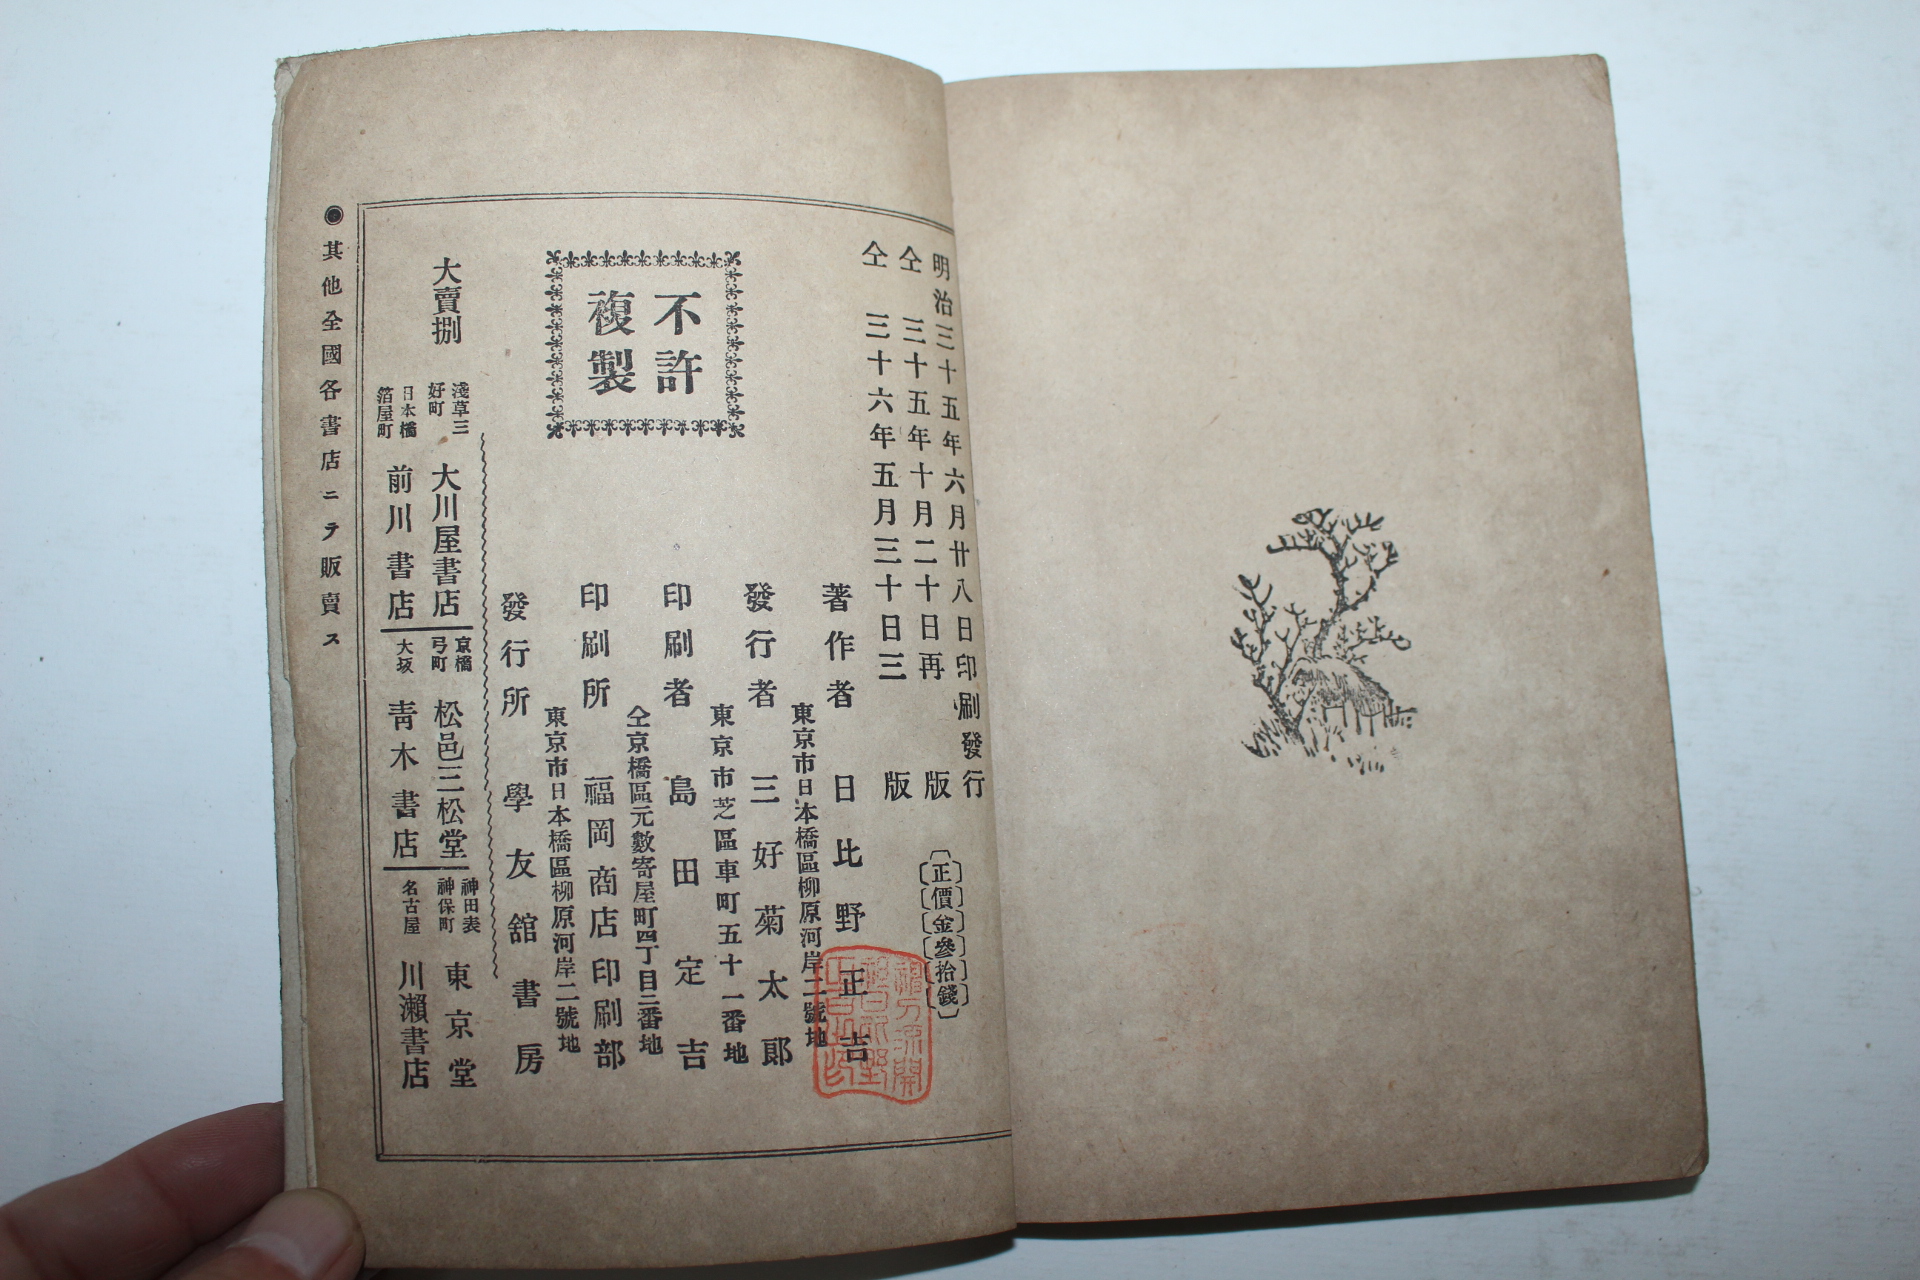 明治三十五年六月廿八日印刷發行
仝三十五年十月二十日再版
仝三十六年五月三十日三版
正價金參拾錢
不許
複製
著作者 日比野正吉
東京市日本橋區柳原河岸二號地
發行者 三好菊太郎
東京市芝區車町五十一番地
印刷者 島田定吉
仝京橋區元數寄屋町四丁目二番地
印刷所 福岡商店印刷部
東京市日本橋區柳原河岸二號地
發行所 學友舘書房
大賣捌
淺草三好町 大川屋書店
日本橋箔屋町 前川書店
京橋弓町 松邑三松堂
大坂 青木書店
神田表神保町 東京堂
名古屋 川瀨書店
◉其他全國各書店ニテ販賣ス